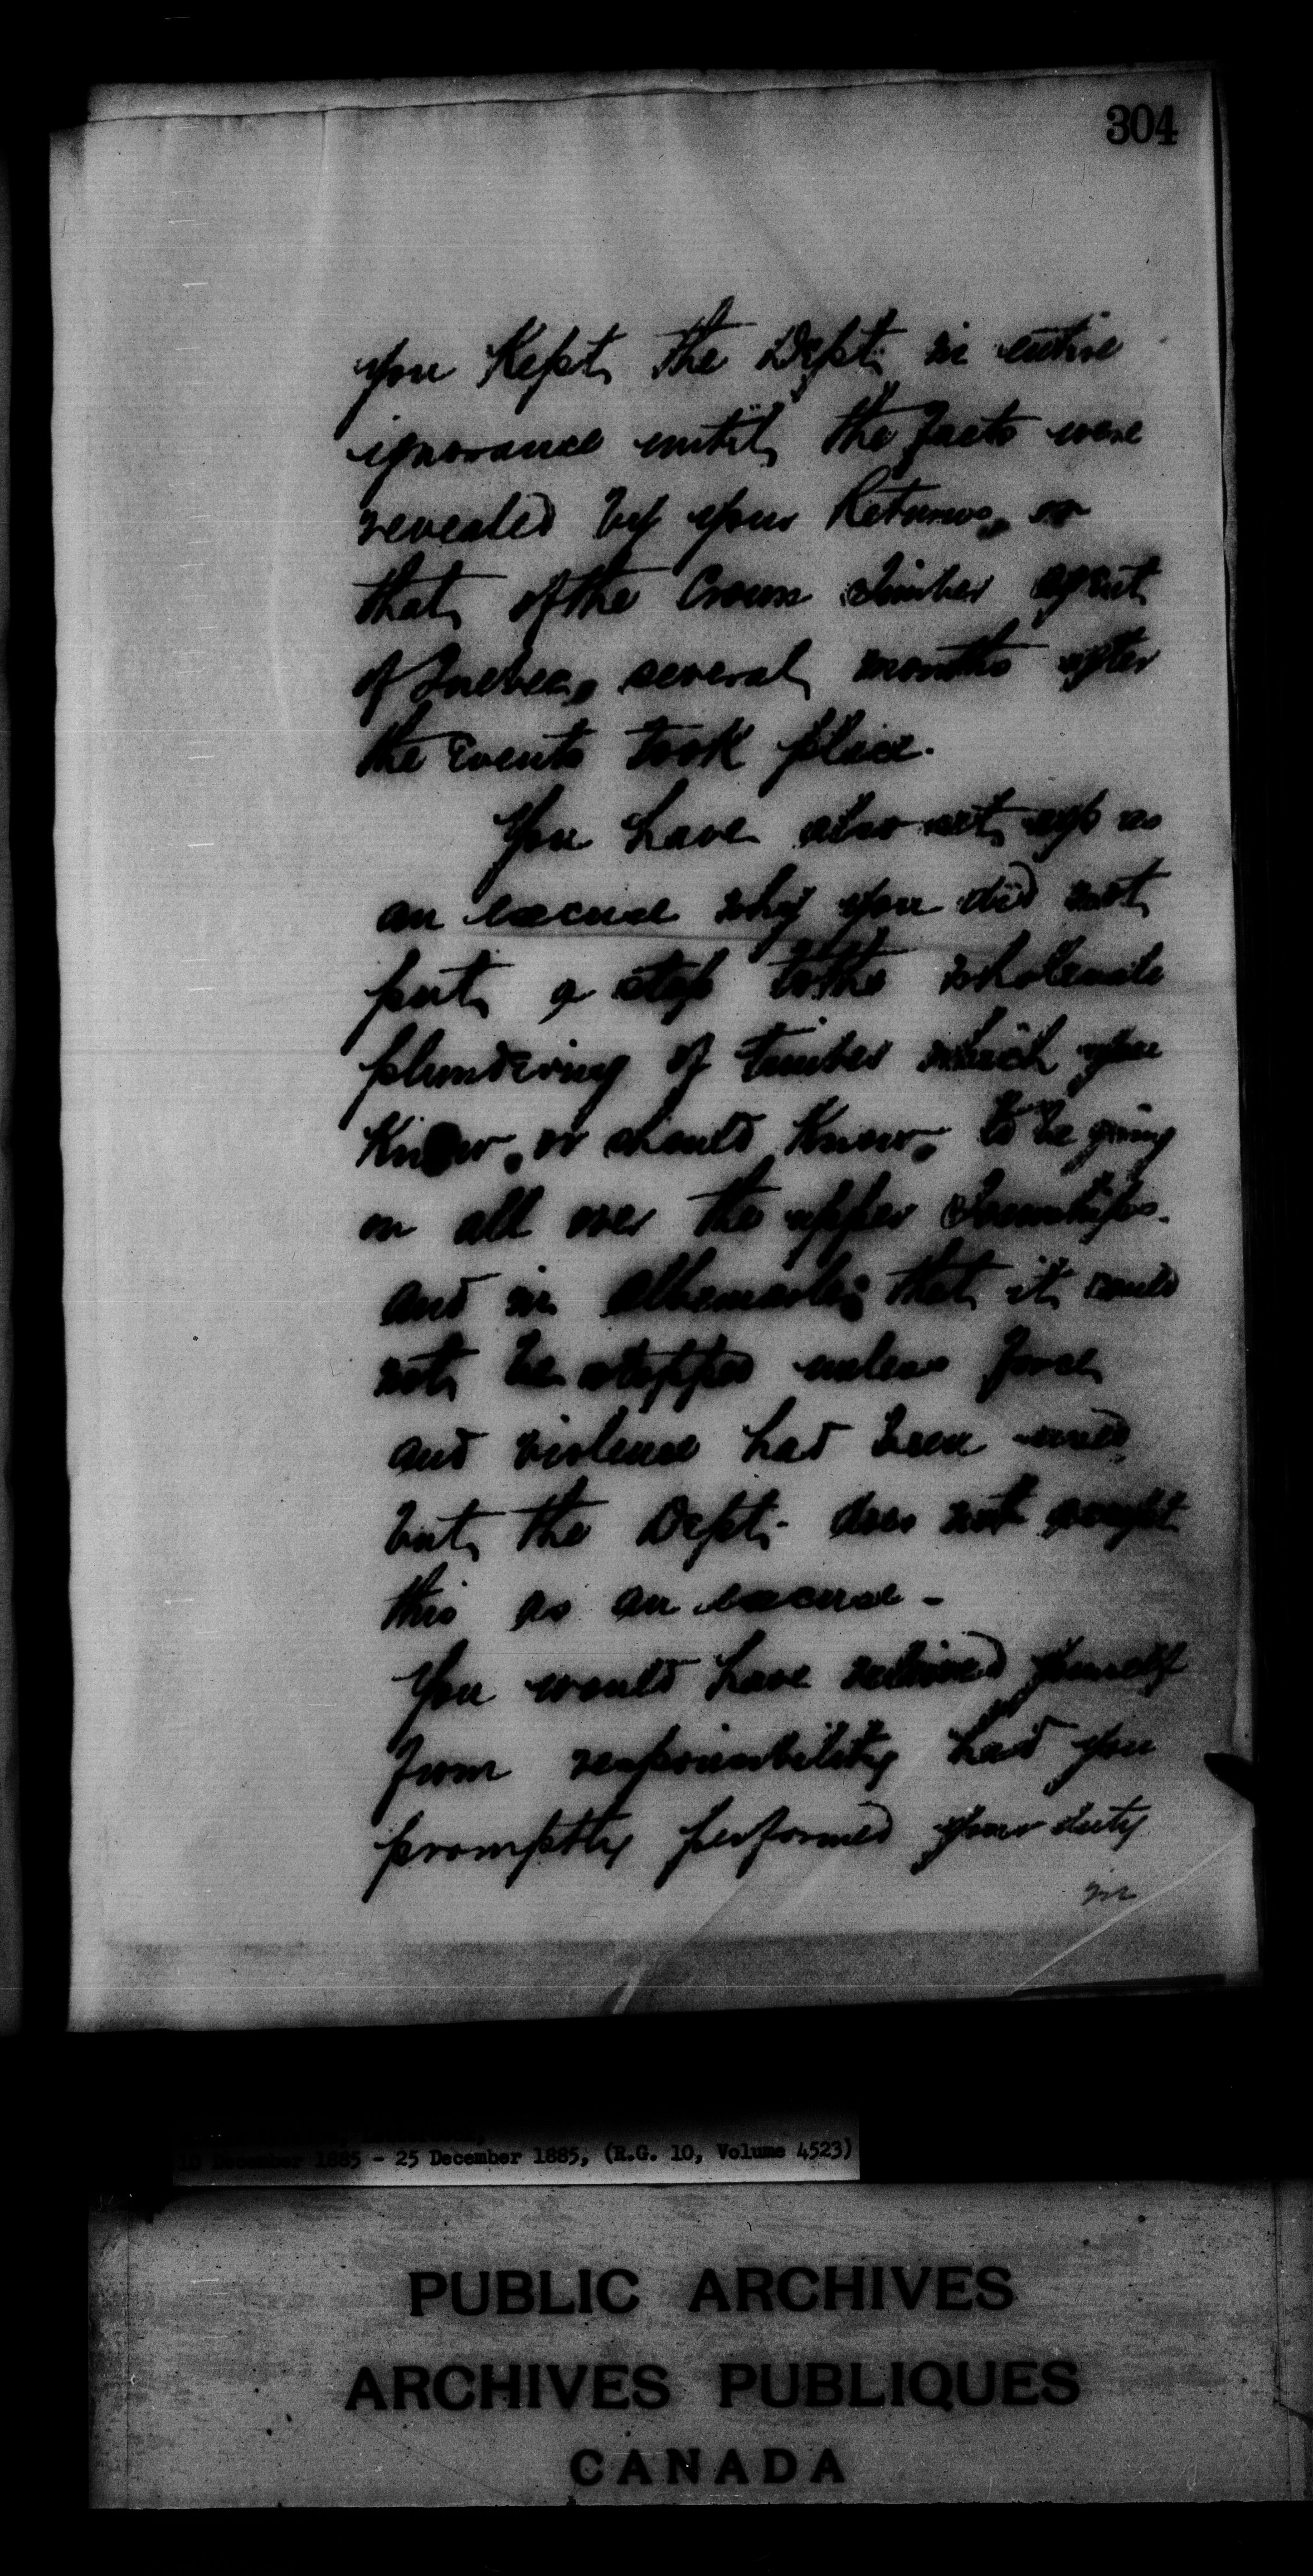 304
you Kept the Dept. in entire
ignorance until the facts were
revealed by your Returns, or
that of the Crown Timber agent
of Quebec, several months after
the events took place.
You have also set up as
an excuse why you did not
put a stop to the wholesale
plundering of timber which you
Know, or should Know, to be going
on all over the upper Townships
and in Albemarle; that it could
not be stopped unless force
and violence had been used
but the Dept. does not accept
this as an excuse -
You would have relieved yourself
from responsibility had you
promptly performed your duty
in
10 December 1885 - 25 December 1885, (R.G. 10, Volume 4523)
PUBLIC ARCHIVES
ARCHIVES PUBLIQUES
CANADA